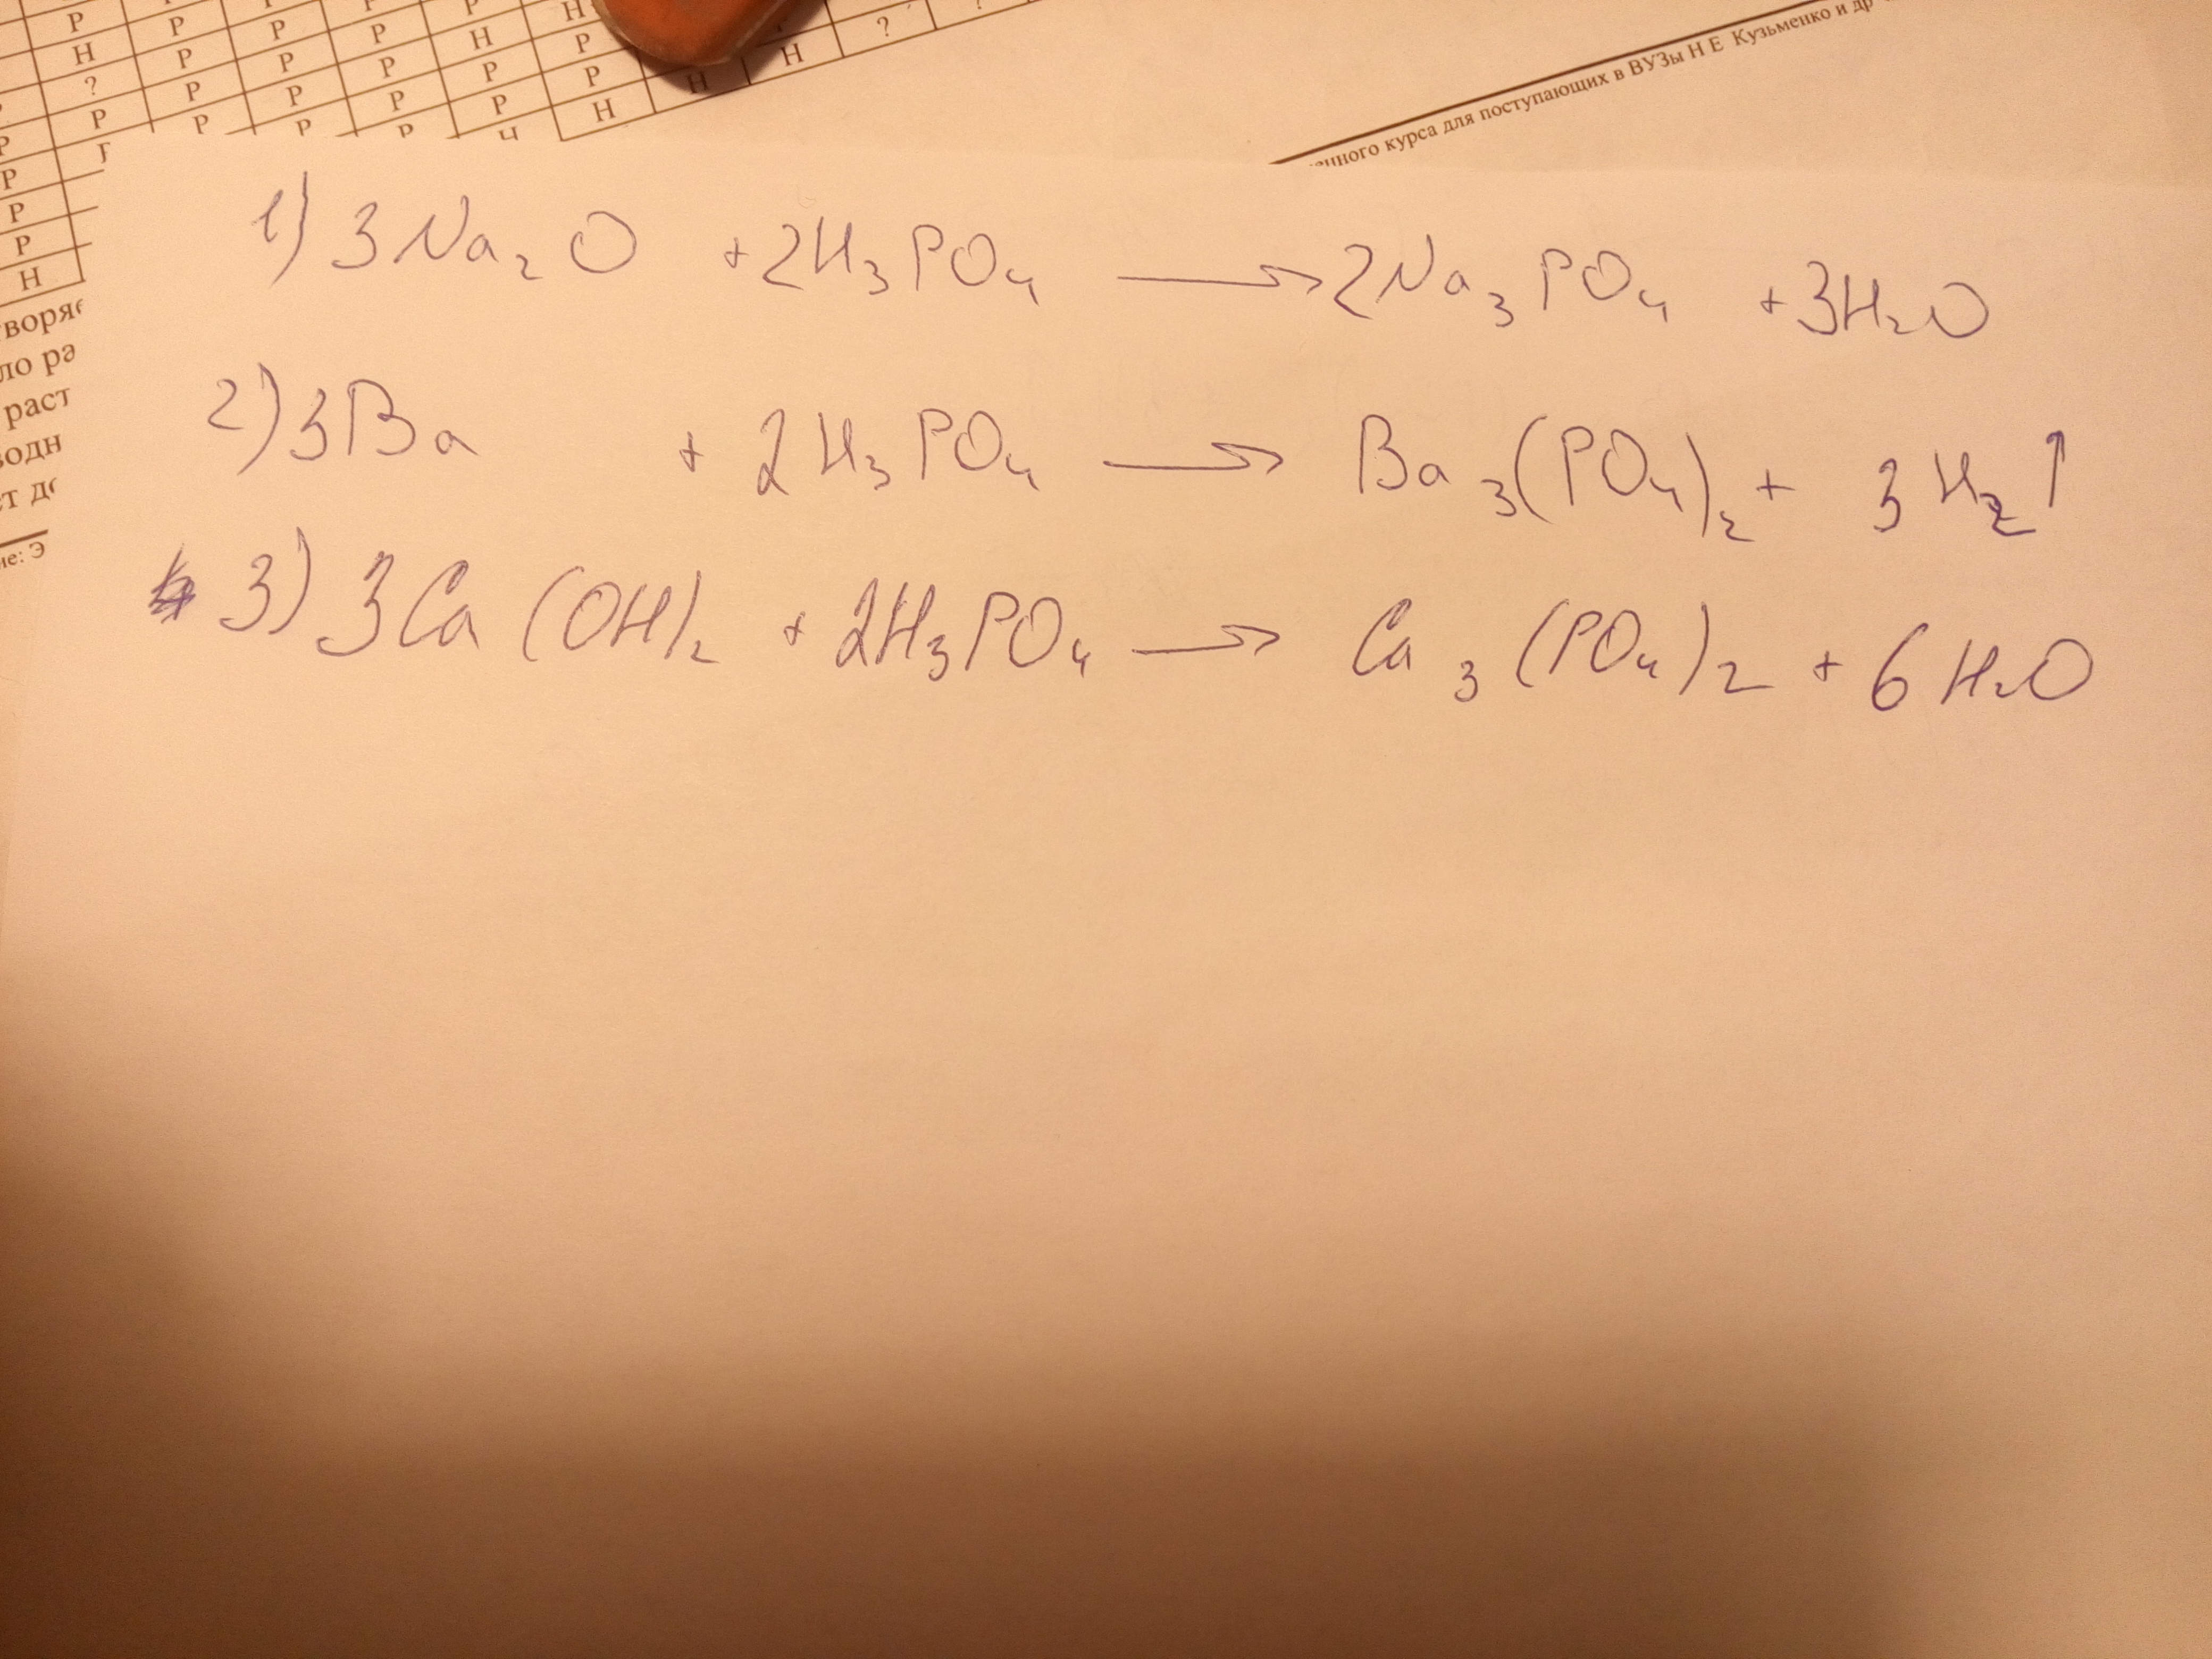 Р Р Р Р Р Н
Н Р Р Н Р Р Н ?
? Р Р Р Р Р Н
Р Р Р Р Р Н
Р Р Р
Р
Р
Р
Н
ло ра
раст
водн
ет де
ие: Э
курса для поступающих в ВУЗы Н Е Кузьменко и др
1) 3Na₂O + 2H₃PO₄ → 2Na₃PO₄ + 3H₂O
2) 3Ba + 2H₃PO₄ → Ba₃(PO₄)₂ + 3H₂↑
3) 3Ca(OH)₂ + 2H₃PO₄ → Ca₃(PO₄)₂ + 6H₂O